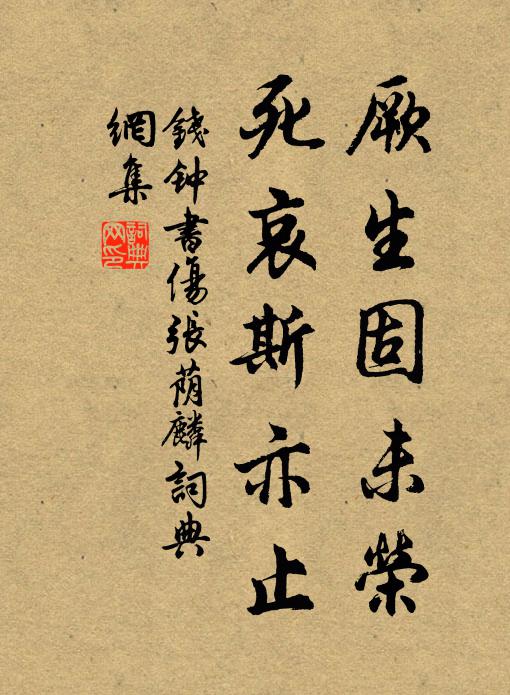 厥生固未榮
死哀斯亦止
錢钟書傷張荫麟詞典
網集
詞典
网印